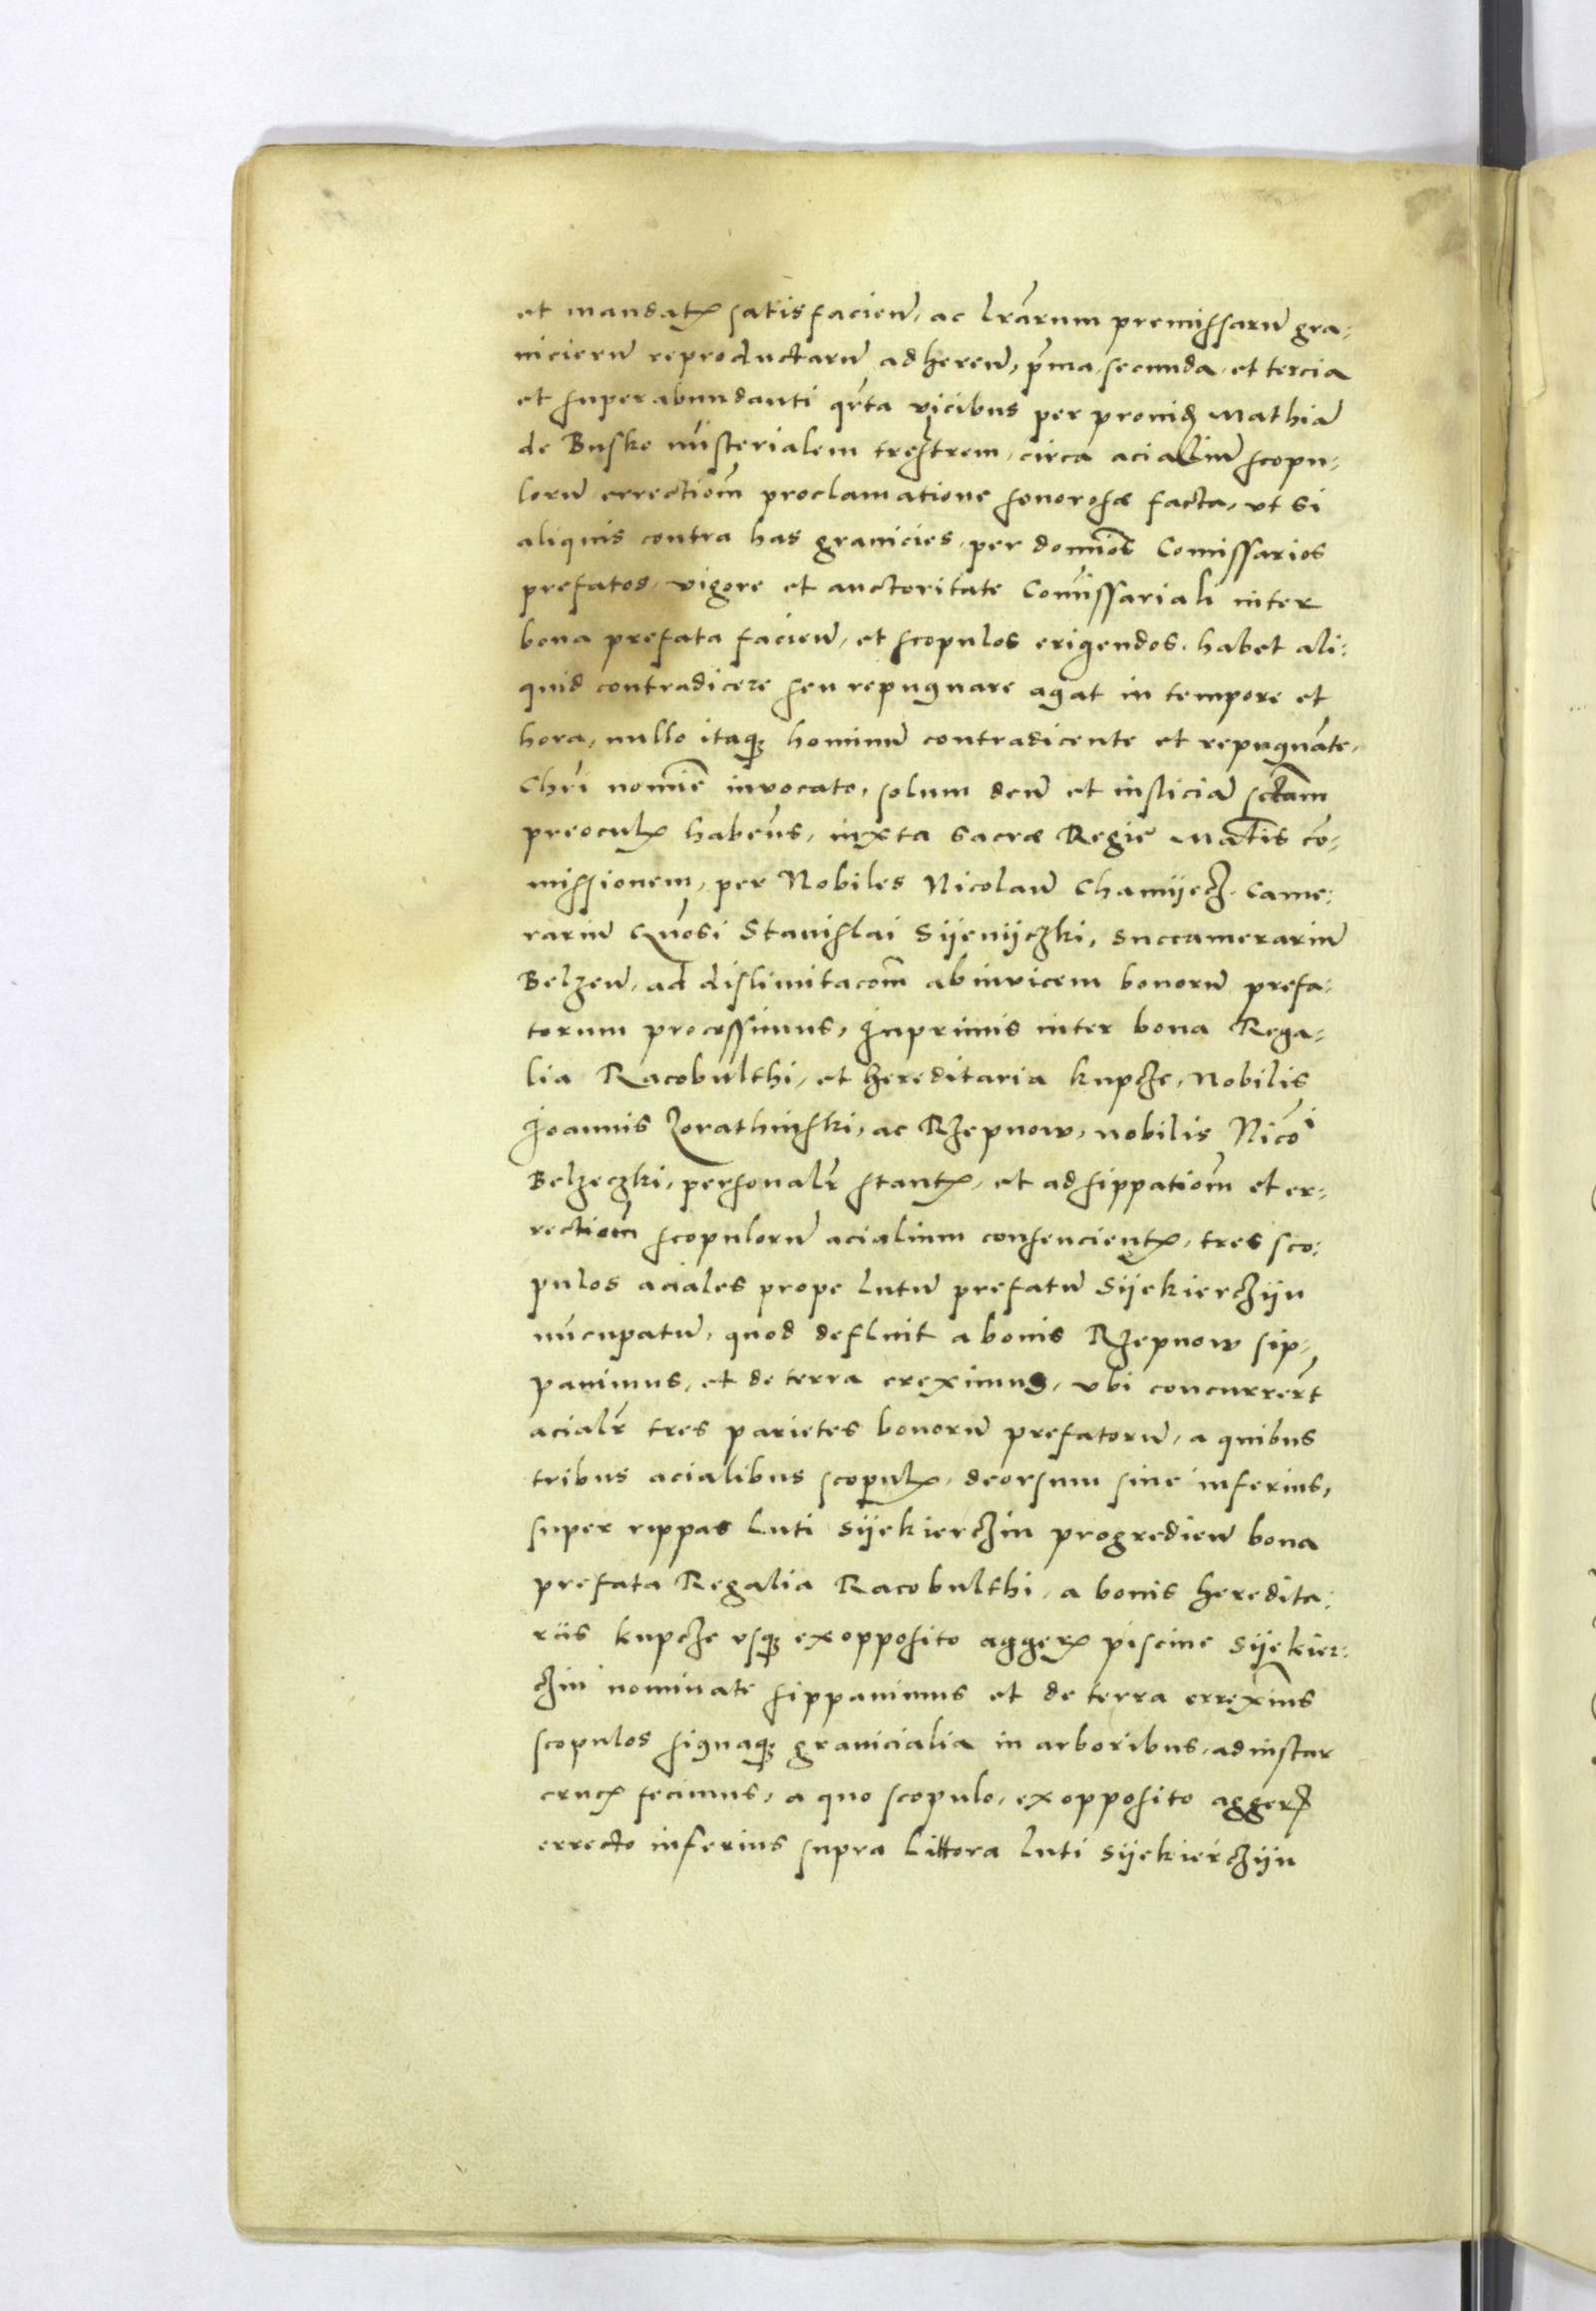 et mandatꝭ satisfacień, ac lrārum premissarū gra:
nicierū reproductarū adhereń, pr̄ma, secunda, et tercia
et superabundanti qrta vicibus per prouiꝺ Mathiā
de Busko mīsterialem trestrem, circa acialiū scopu-
lorū errectiom̄ proclamatione sonorosæ facta, vt si
aliquis contra has granicies, per domīos Comissarios
prefatos, vigore et auctoritate Comissariali inter
bona prefata facień, et scopulos erigendos, habet ali:
quid contradicere seu repugnare agat in tempore et
hora, nullo itaqꝫ hominū contradicente et repugnāte,
Chri nomīe inuocato, solum deū et iusticiā sctam
preoculꝭ habeńs, iuxta sacræ Regie Matis cō-
missionem, per Nobiles Nicolaū Chamyecz, Came:
rariū Gnosi Stanislai Syenyczki, succamerariū
Belzeń, ad dislimitacom̄ abinuicem bonorū prefa-
torum processimus, Inprimis inter bona Rega-
lia Racobulthi, et hereditaria kupcze, Nobilis
Joannis Zorathinski, ac Rzepnow, nobilis Nicoi
Belzeczki, personalr̄ stantꝭ, et ad sippatiom̄ et er-
rectiom̄ scopulorū acialium consencientꝭ, tres sco:
pulos aciales prope lutū prefatū Syekierczyn
nūcupatū, quod defluit a bonis Rzepnow sip-
pauimus, et de terra ereximus, vbi concurrer̄t
acialr̄ tres parietes bonorū prefatorū, a quibus
tribus acialibus scopulꝭ, deorsum siue inferius,
super rippas luti syekierczin progredień bona
prefata Regalia Racobulthi, a bonis heredita:
riis kupcze vsqꝫ exopposito aggerꝭ piscine Syekier:
czin nominate sippauimus et de terra errexim̄s
scopulos signaqꝫ granicialia in arboribus, adinstar
crucꝭ fecimus, a quo scopulo, exopposito aggerꝭ
errecto inferius supra littora luti syekierczyn